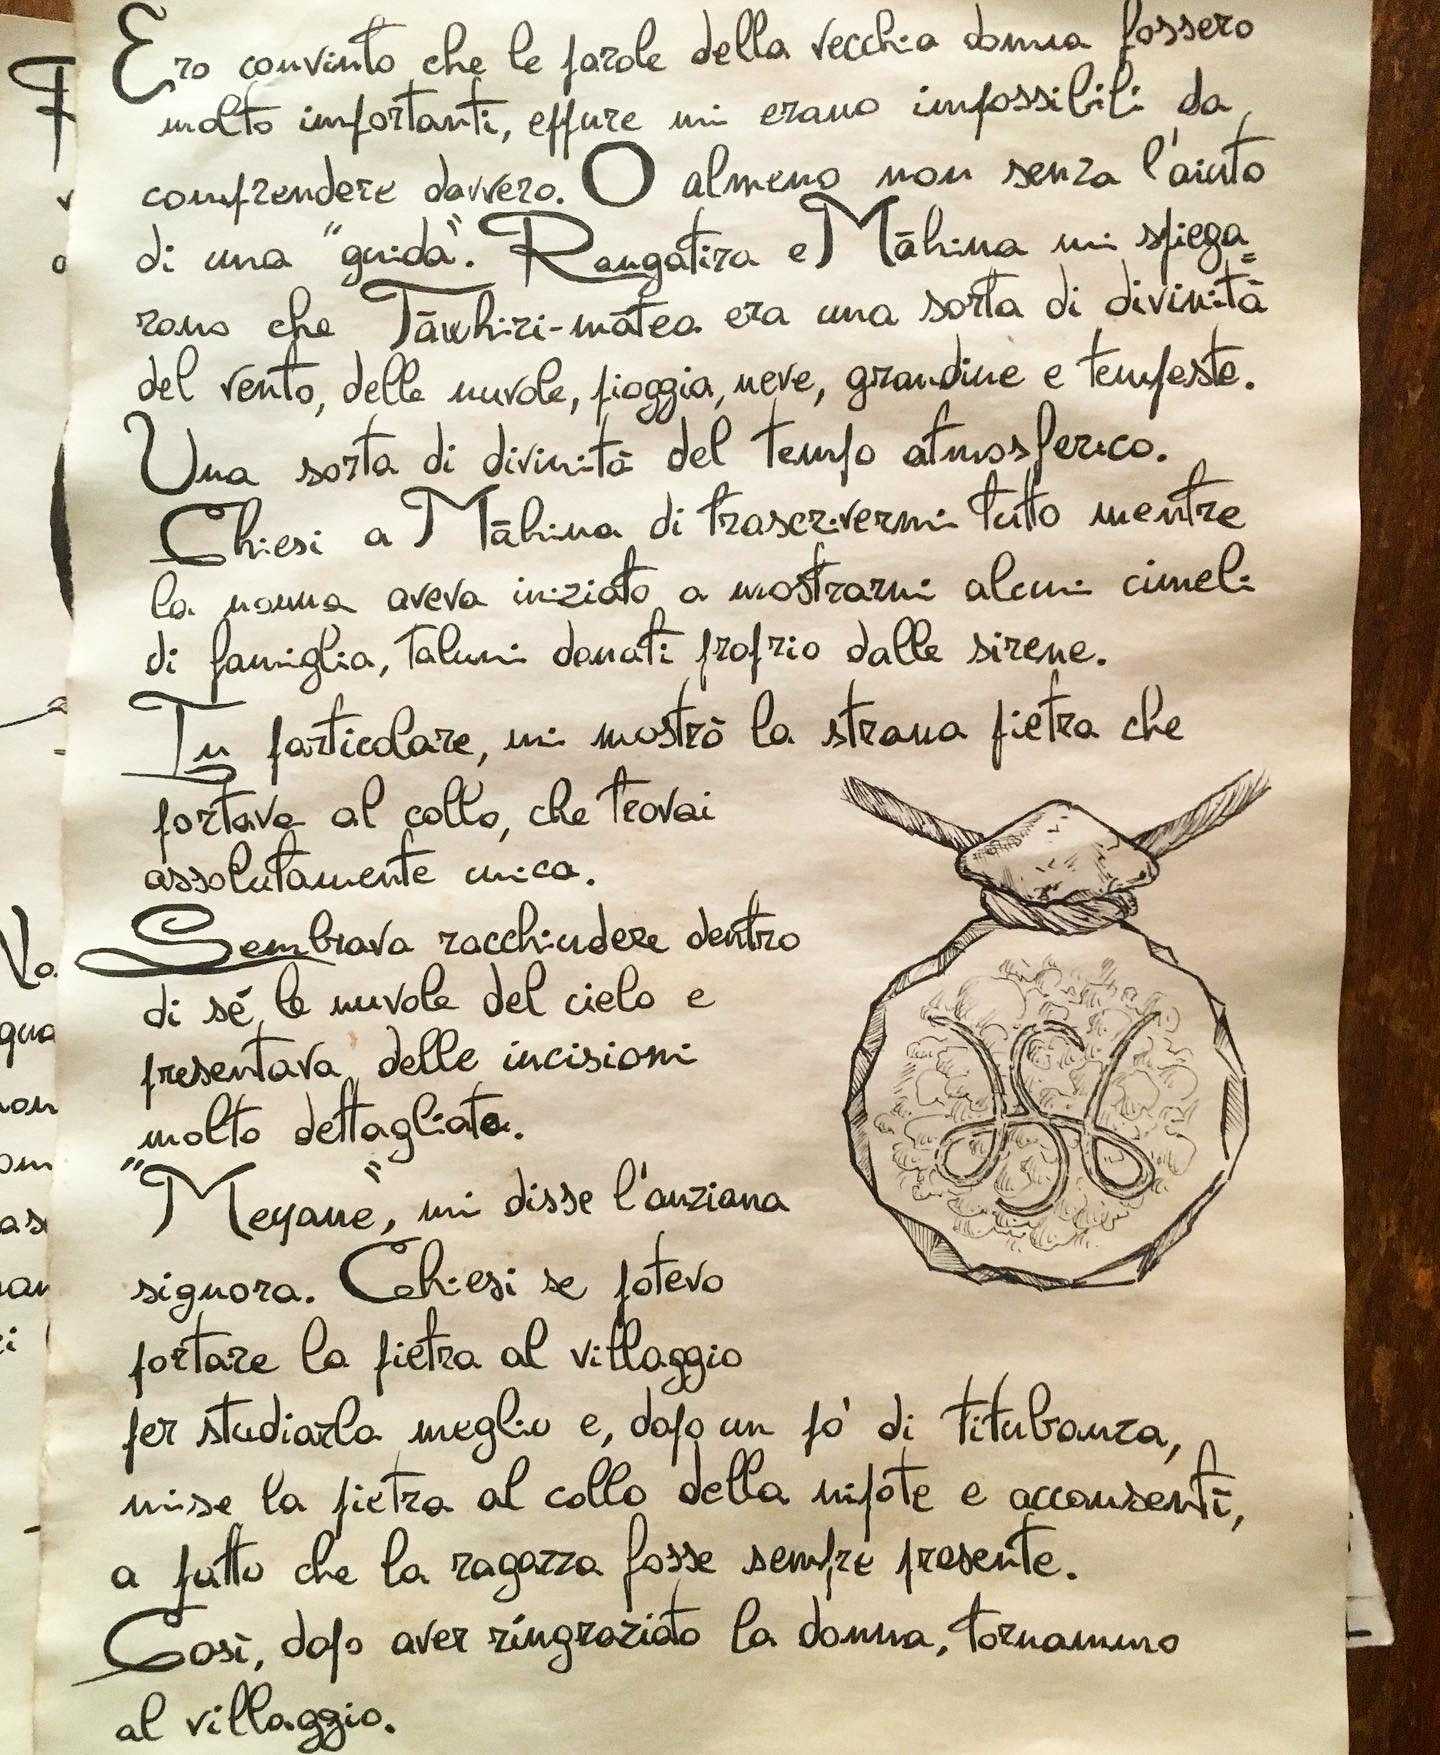 Ero convinto che le parole della vecchia donna fossero
molto importanti, eppure mi erano impossibili da
comprendere davvero. O almeno non senza l'aiuto
di una "guida". Rangatira e Māhina mi spiega=
rono che Tāwhiri-mātea era una sorta di divinità
del vento, delle nuvole, pioggia, neve, grandine e tempeste.
Una sorta di divinità del tempo atmosferico.
Chiesi a Māhina di trascrivermi tutto mentre
la nonna aveva iniziato a mostrarmi alcuni cimeli
di famiglia, taluni donati proprio dalle sirene.
In particolare, mi mostrò la strana pietra che
portava al collo, che trovai
assolutamente unica.
Sembrava racchiudere dentro
di sé le nuvole del cielo e
presentava delle incisioni
molto dettagliate.
"Meyane", mi disse l'anziana
signora. Chiesi se potevo
portare la pietra al villaggio
per studiarla meglio e, dopo un po' di titubanza,
mise la pietra al collo della nipote e acconsentì,
a patto che la ragazza fosse sempre presente.
Così, dopo aver ringraziato la donna, tornammo
al villaggio.